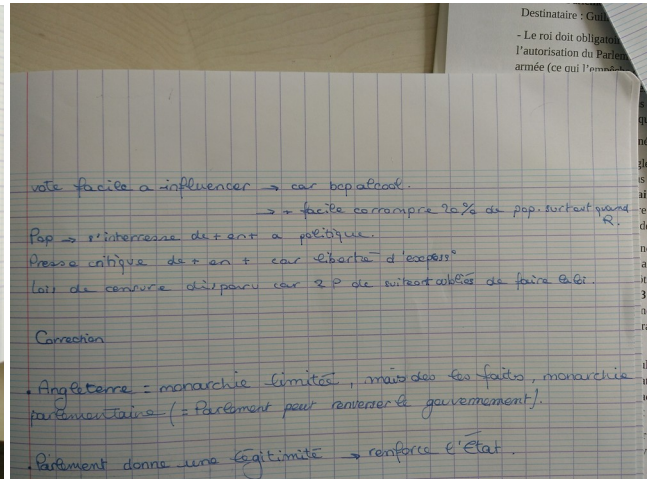 Destinataire : Gui
- Le roi doit obligatoi
l'autorisation du Parlem
armée (ce qui l'empêch
vote facile a influencer → car bcp alcool.
→ + facile corrompre 20% de pop. surtout quand
R.
Pop → s'interresse de + en + a politique.
Presse critique de + en + car liberté d'express°
Lois de censure disparu car 2 P de suite ont oubliés de faire la loi.
Correction
• Angleterre = monarchie limitée, mais ds les faits, monarchie
parlementaire (= Parlement peut renverser le gouvernement).
• Parlement donne une légitimité → renforce l'État.